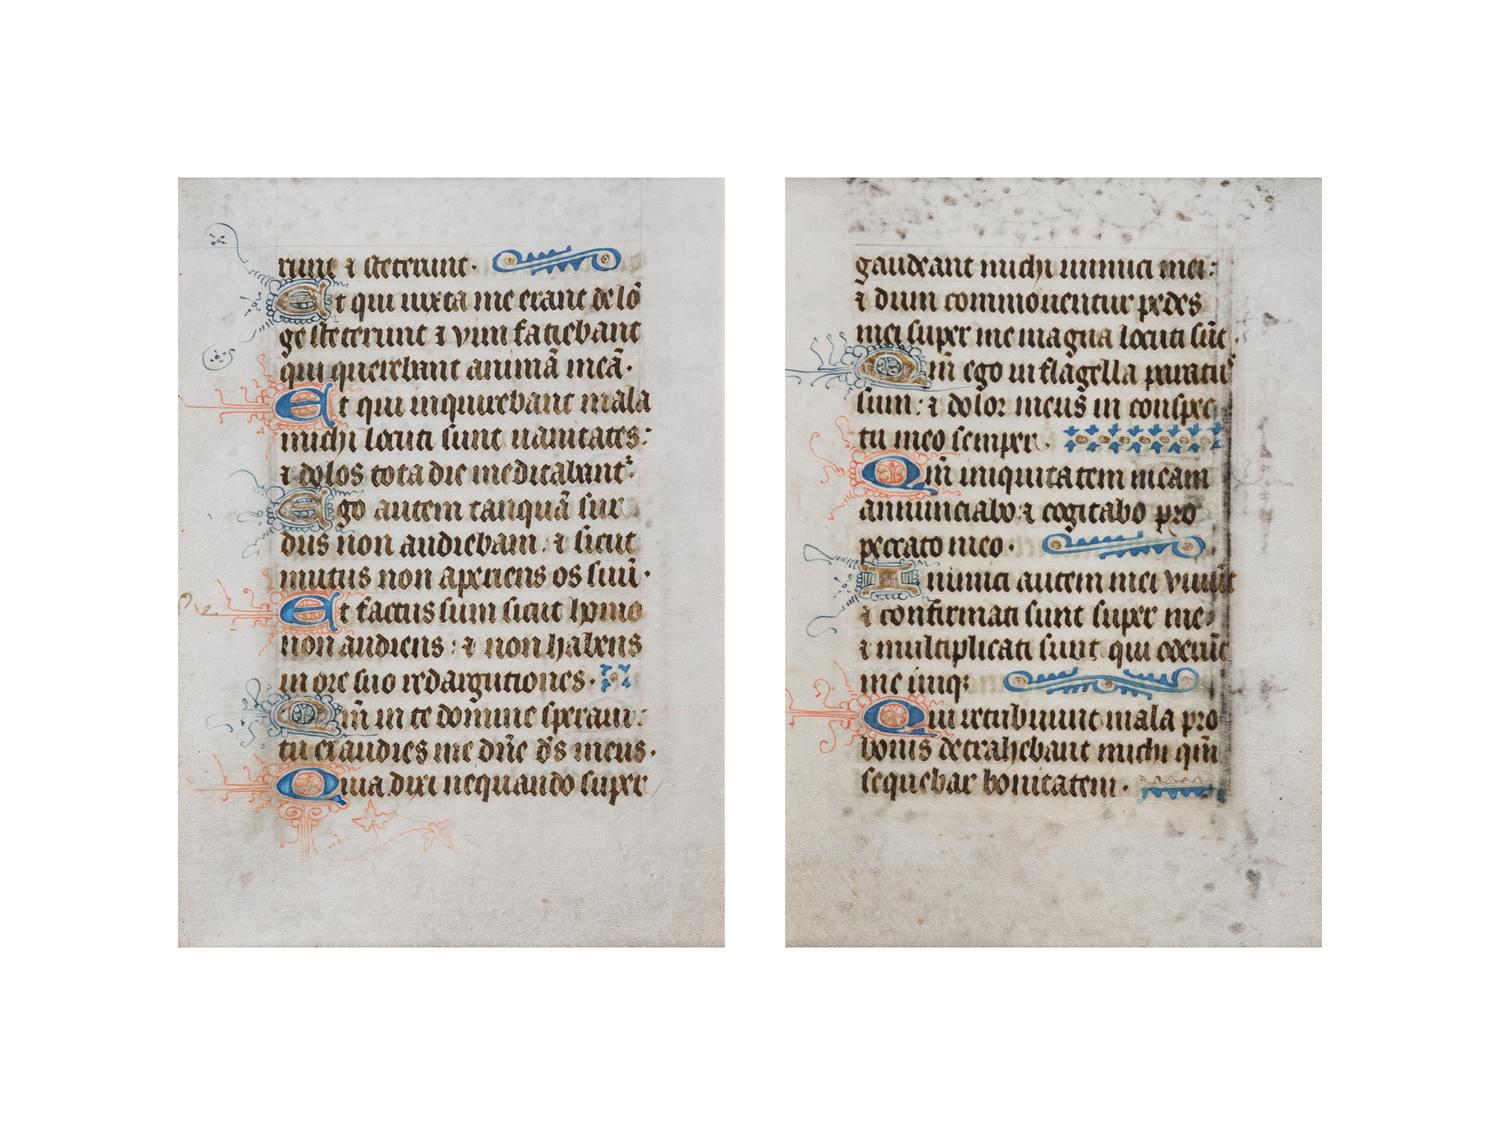 runt ⁊ steterunt.
Et qui iuxta me erant de lõ
ge steterunt ⁊ vim faciebant
qui querebant animã meã.
Et qui inquirebant mala
michi locuti sunt uanitates:
⁊ dolos tota die meditabant᷑
Ego autem tanquã sur
dus non audiebam. ⁊ sicut
mutus non aperiens os suũ.
Et factus sum sicut homo
non audiens: ⁊ non habens
in ore suo redargutiones.
Qm̃ in te domine speraui:
tu exaudies me dñe ds̃ meus.
Quia dixi nequando super
gaudeant michi inimici mei:
⁊ dum commouentur pedes
mei super me magna locuti sũt.
Qm̃ ego in flagella paratꝰ
sum: ⁊ dolor meus in conspec
tu meo semper.
Qm̃ iniquitatem meam
annunciabo ⁊ cogitabo pro
peccato meo.
Inimici autem mei viuũt
⁊ confirmati sunt super me
⁊ multiplicati sunt qui oderũt
me iniqꝫ
Qui retribuunt mala pro
bonis detrahebant michi qm̃
sequebar bonitatem.